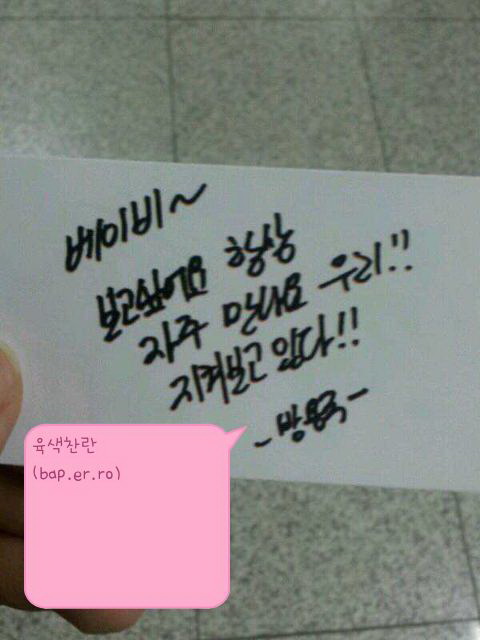 베이비~
보고싶어요 항상
자주 만나요 우리!!
지켜보고 있다!!
-방용국-
육색찬란
(bap.er.ro)